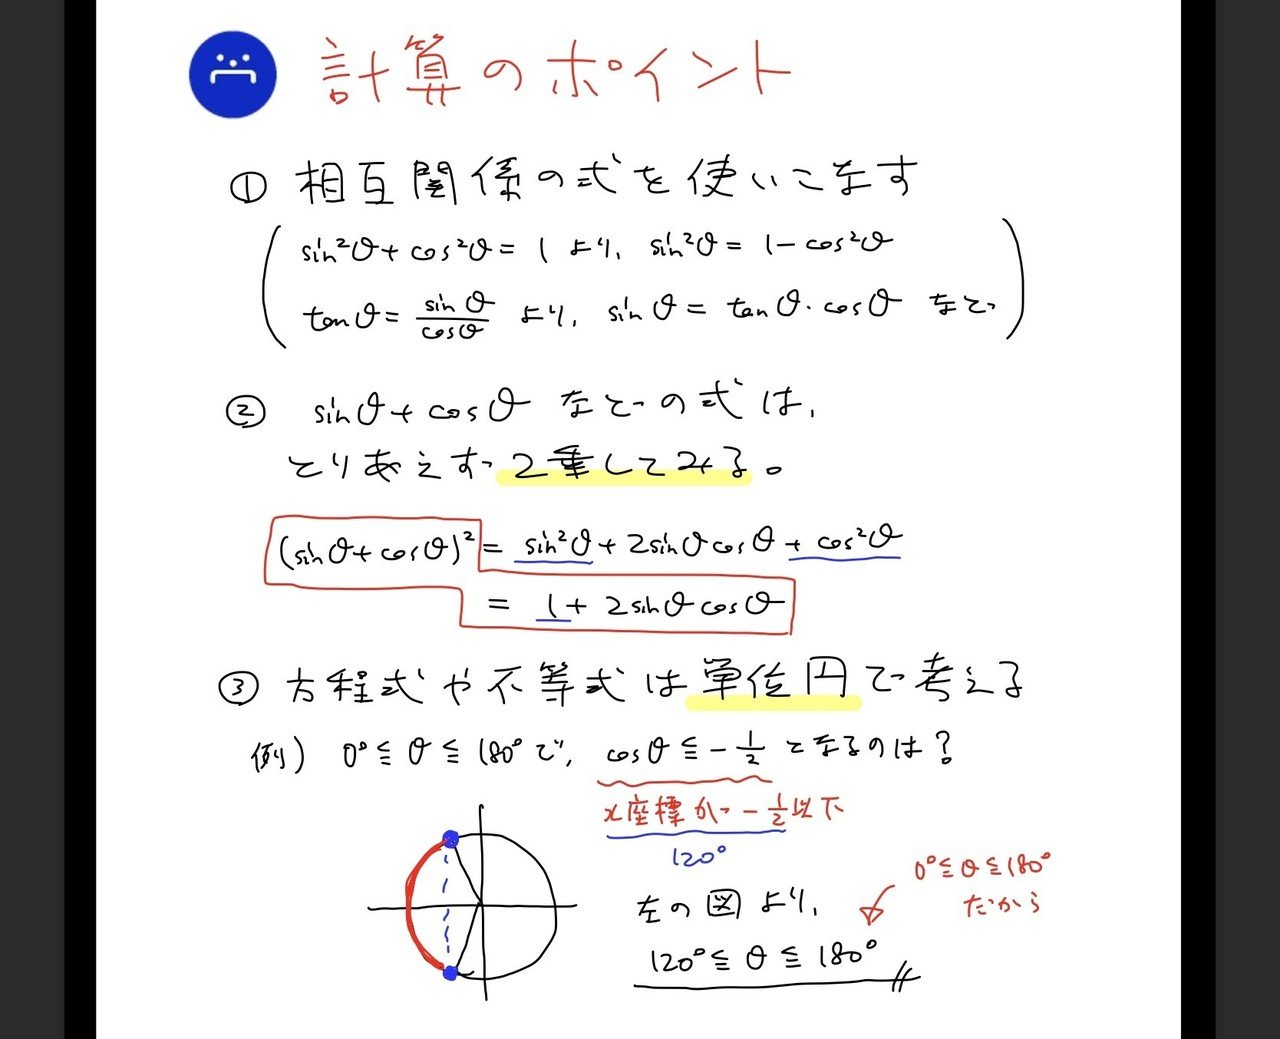 計算のポイント
① 相互関係の式を使いこなす
sin²θ+cos²θ=1 より、sin²θ=1-cos²θ
tanθ=sinθ/cosθ より、sinθ=tanθ·cosθ など
② sinθ+cosθ などの式は、
とりあえず2乗してみる。
(sinθ+cosθ)²=sin²θ+2sinθcosθ+cos²θ
=1+2sinθcosθ
③ 方程式や不等式は単位円で考える
例) 0°≦θ≦180°で、cosθ≦-1/2となるのは?
x座標が-1/2以下
120°
0°≦θ≦180°
だから
左の図より、
120°≦θ≦180°